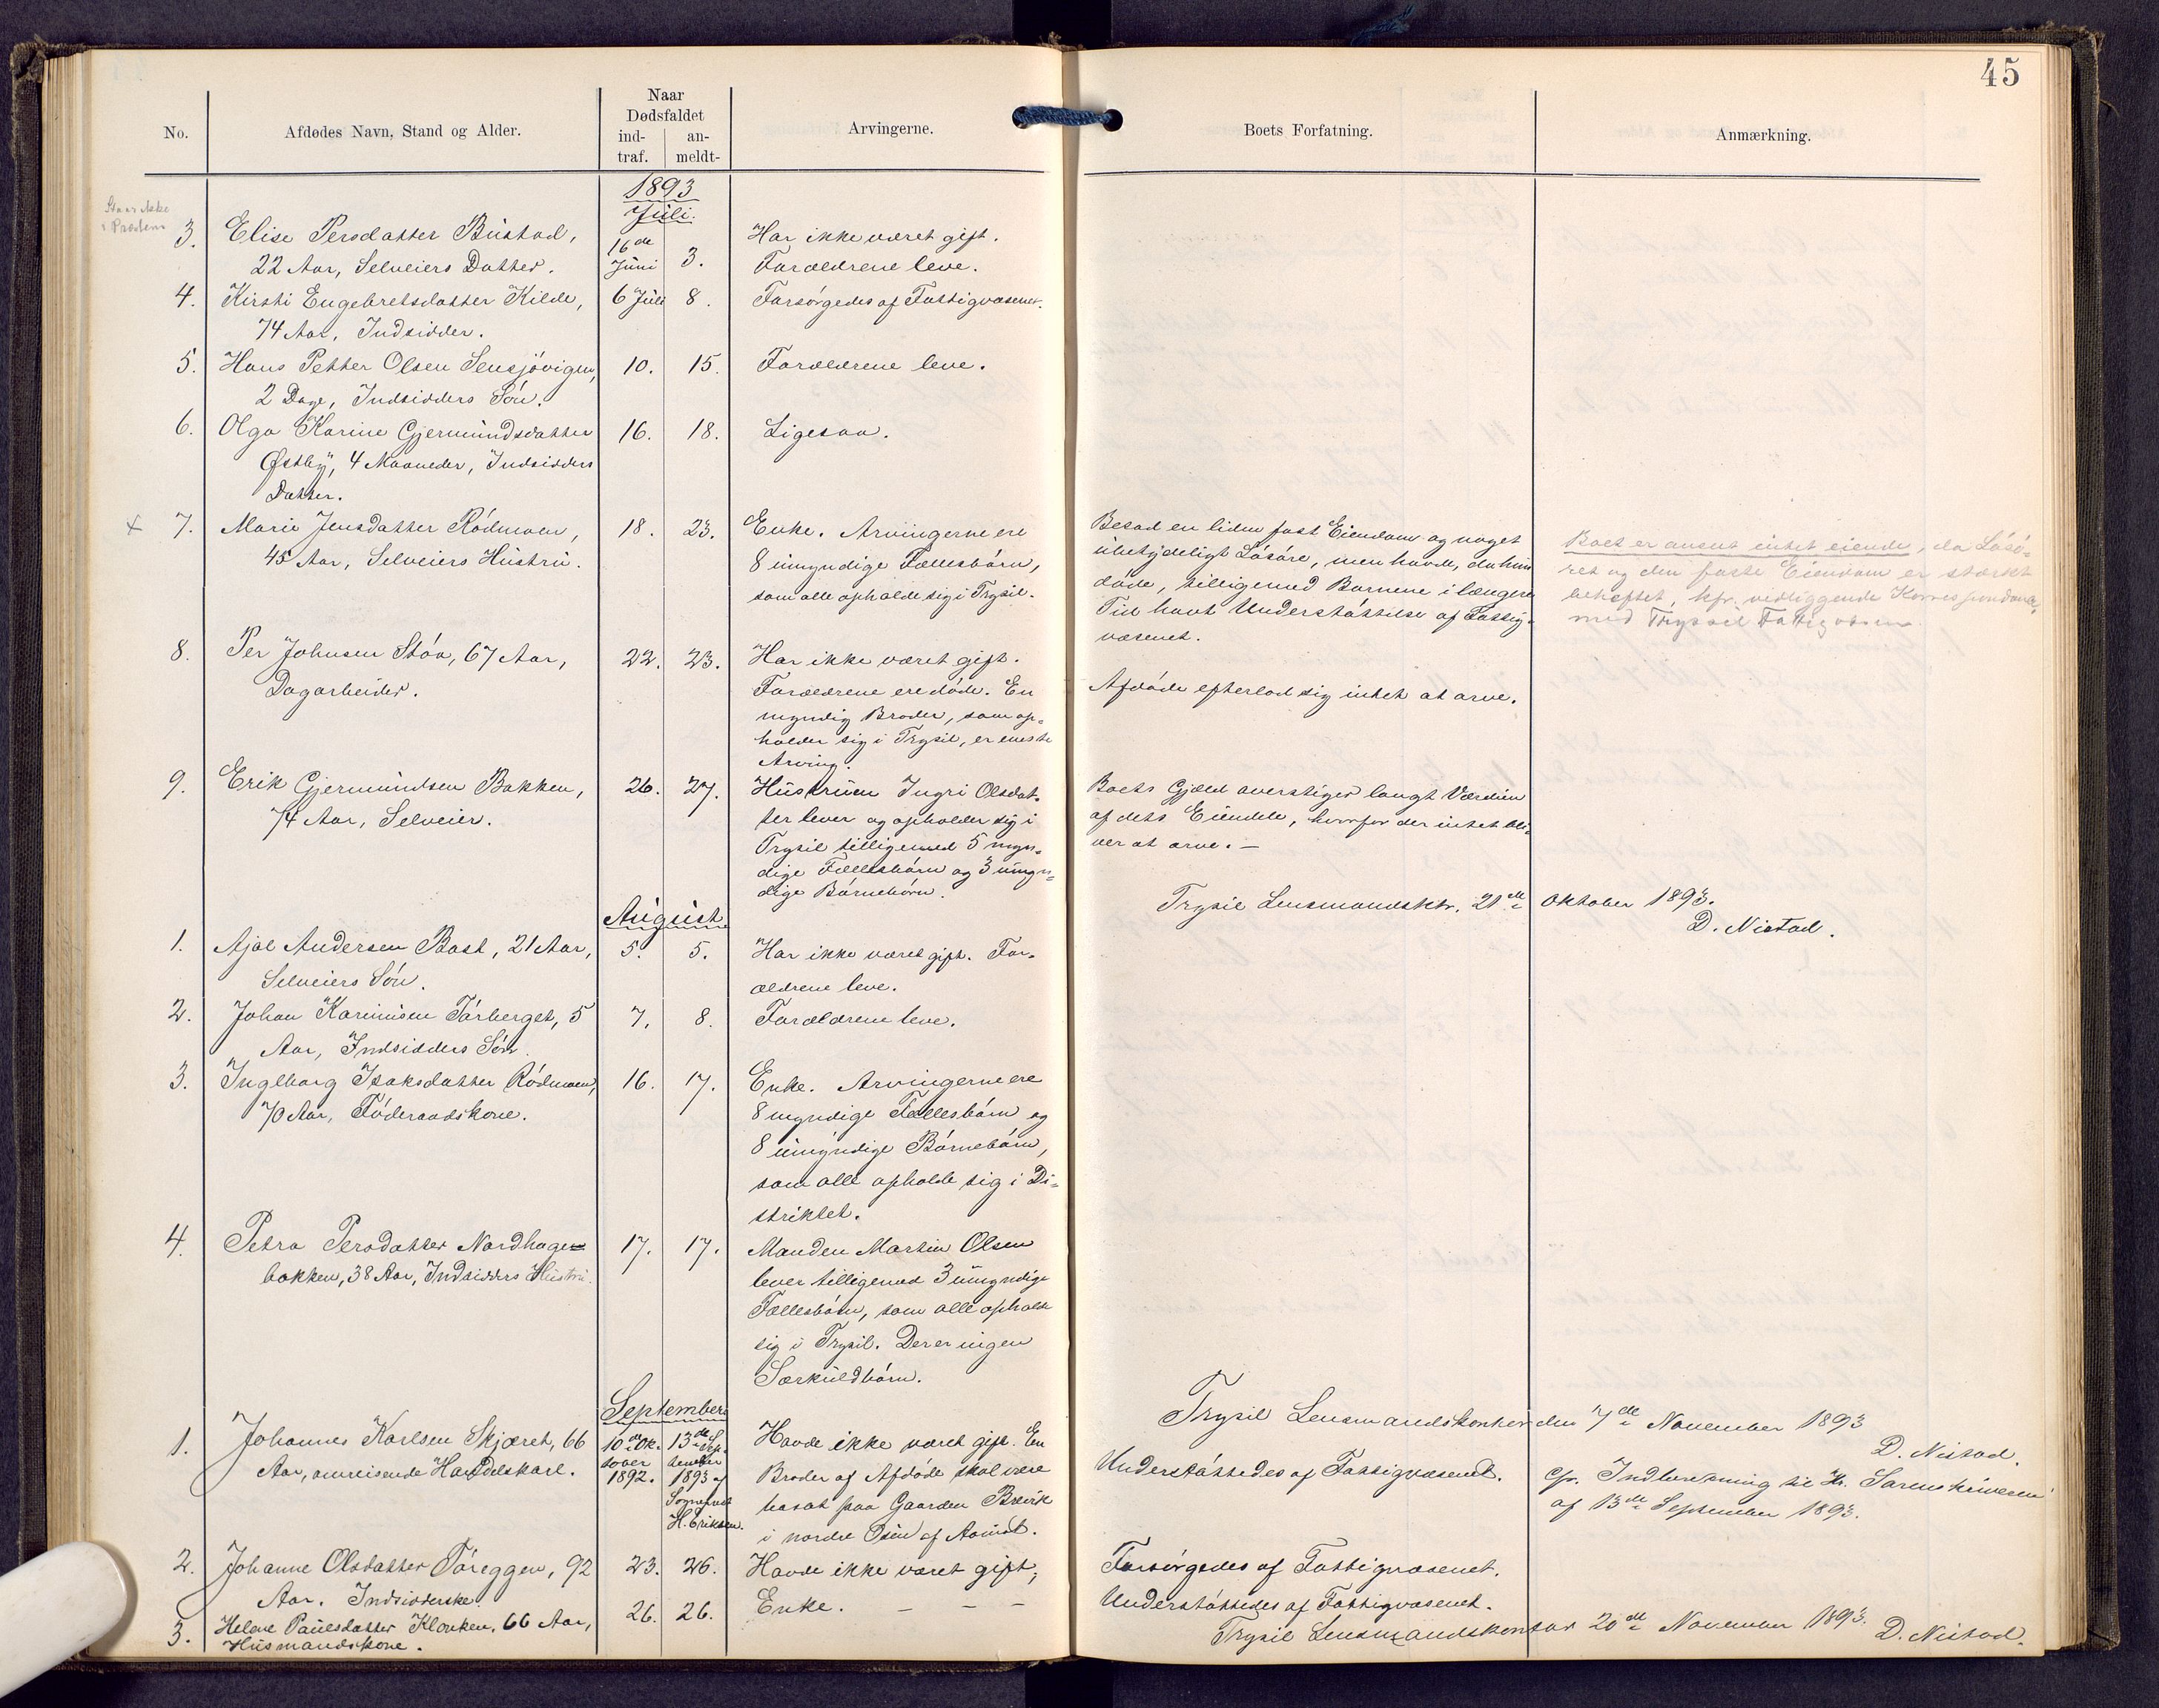 45
No.
Afdødes Navn, Stand og Alder.
Naar
Dødsfaldet
ind-
traf.
an-
meldt-
Arvingerne.
Boets Forfatning.
Anmærkning.
1893
Juli.
Staar ikke
3.
Elise Persdatter Bustad,
22 Aar, Selveiers Datter.
16de
Juni
3.
Har ikke været gift.
Forældrene leve.
4.
Kirsti Engebretsdatter Kilde,
74 Aar, Indsidder.
6 Juli
8.
Forsørgedes af Fattigvæsenet.
5.
Hans Petter Olsen Sensjøvigen,
2 Dage, Indsidders Søn.
10.
15.
Forældrene leve.
6.
Olga Karine Gjermundsdatter
Østby, 4 Maaneder, Indsidders
Datter.
16.
18.
Ligesaa.
x 7.
Marie Jensdatter Rødmoen,
45 Aar, Selveiers Hustru.
18.
23.
Enke. Arvingerne ere
8 umyndige Fællesbørn,
som alle opholde sig i Trysil.
Besad en liden fast Eiendom og noget
ubetydeligt Løsøre, men havde, da hun
døde, tilligemed Børnene i længere
Tid havt Understøttelse af Fattig-
væsenet.
Boet er anseet intet eiende, da Løsø-
ret og den faste Eiendom er stærkt
beheftet, kfr. vedliggende Korrespondance
med Trysil Fattigvæsen
8.
Per Johnsen Støa, 67 Aar,
Dagarbeider.
22.
23.
Har ikke været gift.
Forældrene ere døde. En
myndig Broder, som op-
holder sig i Trysil, er eneste
Arving.
Afdøde efterlod sig intet at arve.
9.
Erik Gjermundsen Bakken,
74 Aar, Selveier.
26.
27.
Hustruen Ingri Olsdat-
ter lever og opholder sig i
Trysil tilligemed 5 myn-
dige Fællesbørn og 3 umyn-
dige Børnebørn.
Boets Gjæld overstiger langt Værdien
af dets Eiendele, hvorfor der intet bli-
ver at arve. —
Trysil Lensmandsktr. 21de Oktober 1893.
D. Nistad.
August
1.
Ajal Andersen Bast, 21 Aar,
Selveiers Søn.
5.
5.
Har ikke været gift. For-
ældrene leve.
2.
Johan Karinusen Tørberget, 5
Aar, Indsidders Søn.
7.
8.
Forældrene leve.
3.
Ingeborg Isaksdatter Rødmoen,
70 Aar, Føderaadskone.
16.
17.
Enke. Arvingerne ere
8 myndige Fællesbørn og
8 umyndige Børnebørn,
som alle opholde sig i Di-
striktet.
4.
Petra Persdatter Nordhagen-
bakken, 38 Aar, Indsidders Hustru.
17.
17.
Manden Martin Olsen
lever tilligemed 3 umyndige
Fællesbørn, som alle opholde
sig i Trysil. Der er ingen
Særkuldbørn.
Trysil Lensmandskontor den 7de November 1893
D. Nistad.
September
1.
Johannes Karlsen Skjæret, 66
Aar, omreisende Handelskarl.
10de Ok-
tober
1892.
13de Sep-
tember
1893 af
H. Eriksen.
Havde ikke været gift. En
Broder af Afdøde skal være
bosat paa Gaarden Brevik
i nordre Osen af Aamot.
Understøttedes af Fattigvæsenet.
cfr. Indberetning til Hr. Sorenskriveren
af 13de September 1893.
2.
Johanne Olsdatter Tøreggen, 92
Aar. Indsidderske.
23.
26.
Havde ikke været gift;
Forsørgedes af Fattigvæsenet.
3.
Helene Paulsdatter Klonken, 66 Aar,
Husmandskone.
26.
26.
Enke. — — —
Understøttedes af Fattigvæsenet.
Trysil Lensmandskontor 20de November 1893.
D. Nistad.